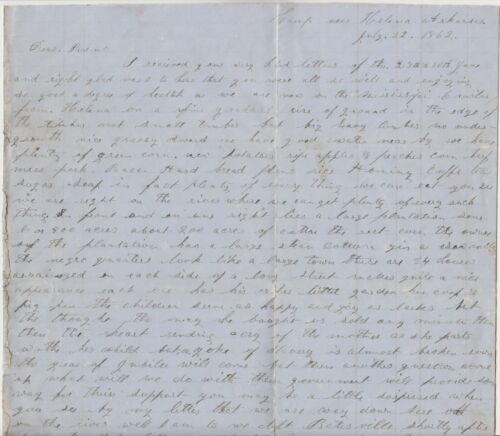 Camp near Helena Arkansas
July. 22. 1862.
Dear Parents
I recieved your very kind letters of the 23d & 10th June
and right glad was I to hear that you were all so well and enjoying
so good a degree of health as we are now on the Mississippi 6 miles
from Helena on a fine gradual rise of ground in the edge of
the timber not small timber but big heavy timber no under
growth nice grassy sward we have good water near by we have
plenty of green corn. new potatoes ripe apples & peaches corn beef
mess pork. Bacon Hard bread flour rice Hominy Coffee tea
sugar soap in fact plenty of every thing we can eat you see
we are right on the river where we can get plenty of every such
thing & front and on our right lies a large plantation some
6 or 800 acres about 200 acres of cotton the rest corn the owner
of the plantation has a large steam cotton gin a
the negro quarters look like a large town there are 24 houses
arrainged on each side of a long street makes quite a nice
appearance each one has his little garden hen coop &
pig pen the children seem as happy and gay as larks but
the thought the may be bought or sold any minute then
then the heart rending cry of the mother as she parts
with her child but a yoke of slavery is almost broken
the year of Jubilee will come but then another question comes
up what will we do with them government will provide some
way for their support you may be a little surprised when
you see by my letter that we are way down here
on the river well I am to we left Batesville shortly after